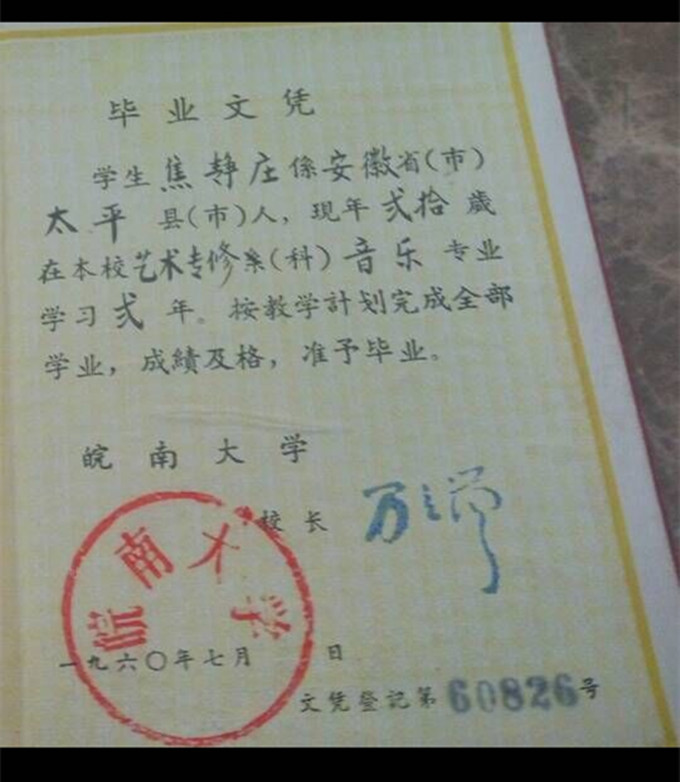 毕业文凭
学生焦静庄係安徽省(市)
太平县(市)人，现年弍拾歲
在本校艺术专修系(科)音乐专业
学习弍年。按教学計划完成全部
学业，成績及格，准予毕业。
皖南大学
校长
皖南大学
一九六〇年七月 日
文凭登记第60826号